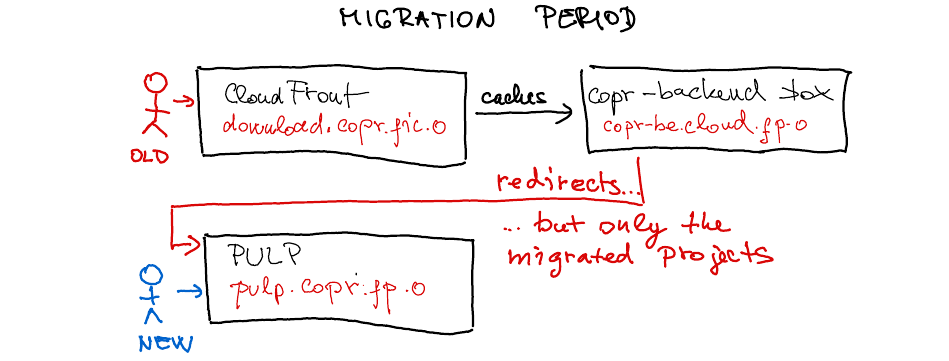 MIGRATION PERIOD
CloudFront
download.copr.fic.o
caches
copr-backend box
copr-be.cloud.fp.o
OLD
redirects...
... but only the
migrated projects
PULP
pulp.copr.fp.o
NEW